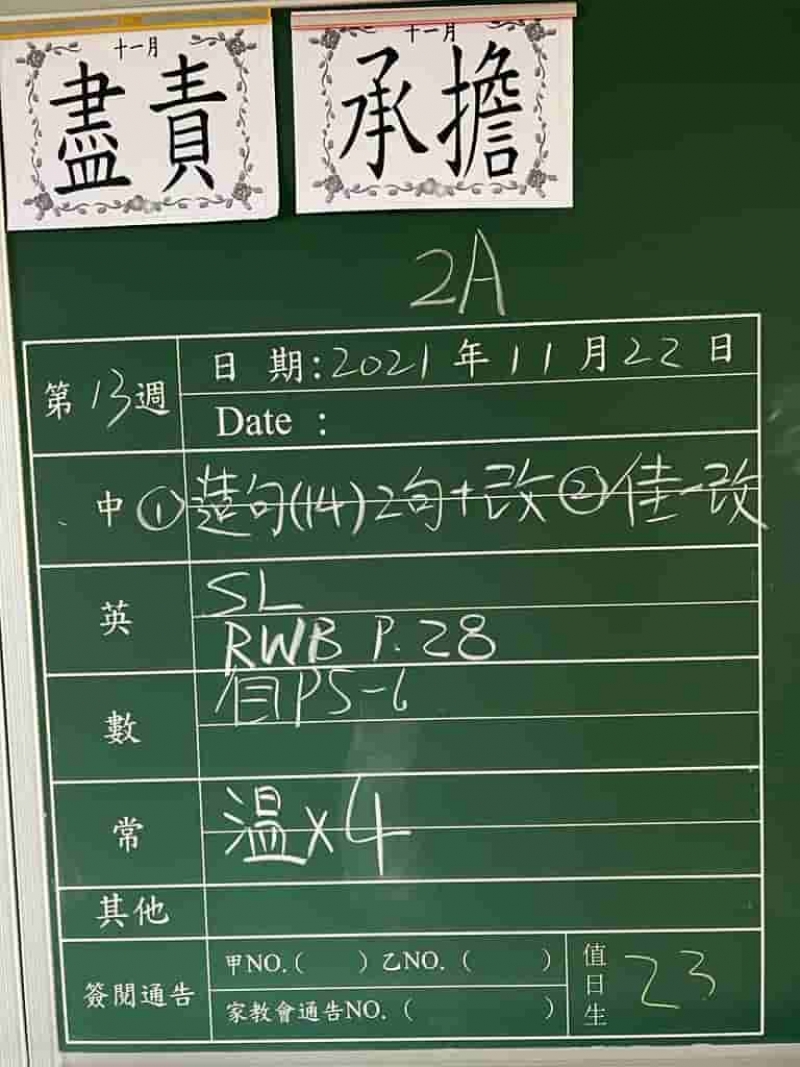 十一月
盡責
十一月
承擔
2A
第13週
日期:2021年11月22日
Date :
中 ①造句(14)2句+改 ②佳一改
英
SL
RWB P.28
數
P5-6
常
溫x4
其他
簽閱通告
甲NO.( ) 乙NO.( )
家教會通告NO.( )
值日生 23